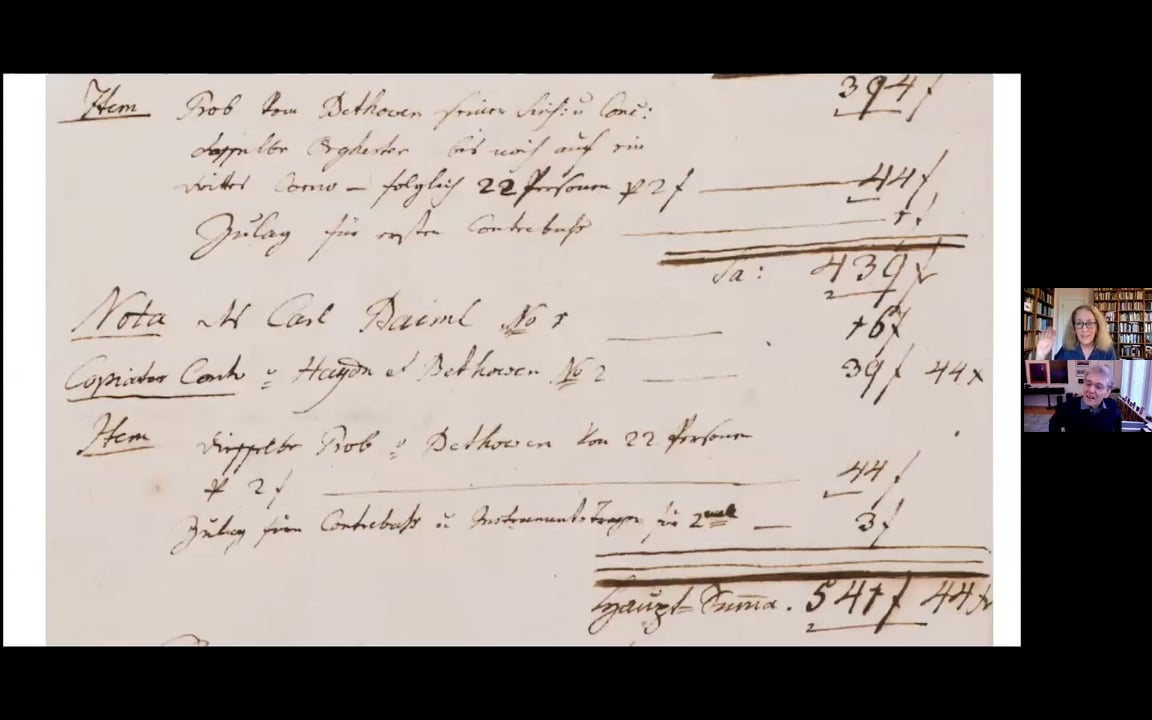 394 f
Item Prob vom Bethowen seiner Sinf: u Conc:
dasselbe Orghester bis noch auf ein
drittes Corno — folglich 22 Personen p 2 f — 44 f
Zulag für ersten Contrebass — 1 f
Sa: 439 f
Nota des Carl Baiml No 1 — 16 f
Copiatur Conto v Haydn et Bethowen No 2 — 39 f 44 x
Item Prob v Bethowen von 22 Personen
p 2 f — 44 f
Zulag fürn Contrebass u Instrumententragen für 2 mal — 3 f
Haupt=Suma. 541 f 44 x